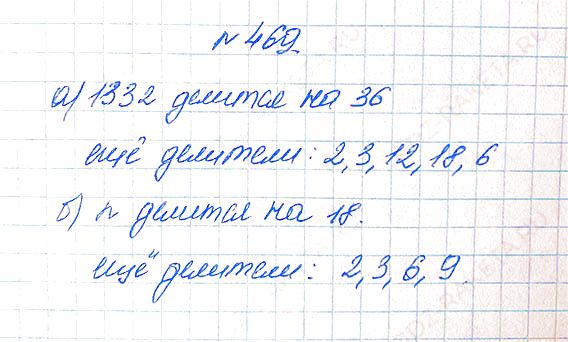 № 469
а) 1332 делится на 36
ещё делители: 2, 3, 12, 18, 6
б) n делится на 18.
ещё делители: 2, 3, 6, 9.